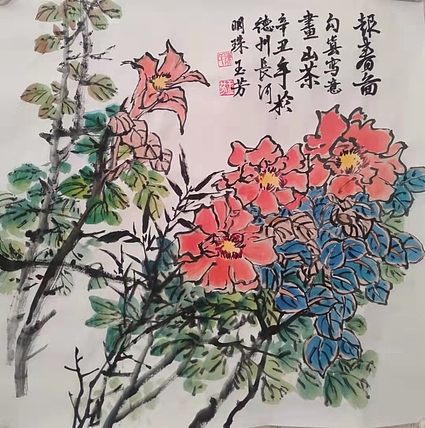 報春圖
勾冀寫意
畫山茶
辛丑年於
德州長河
明珠玉芳